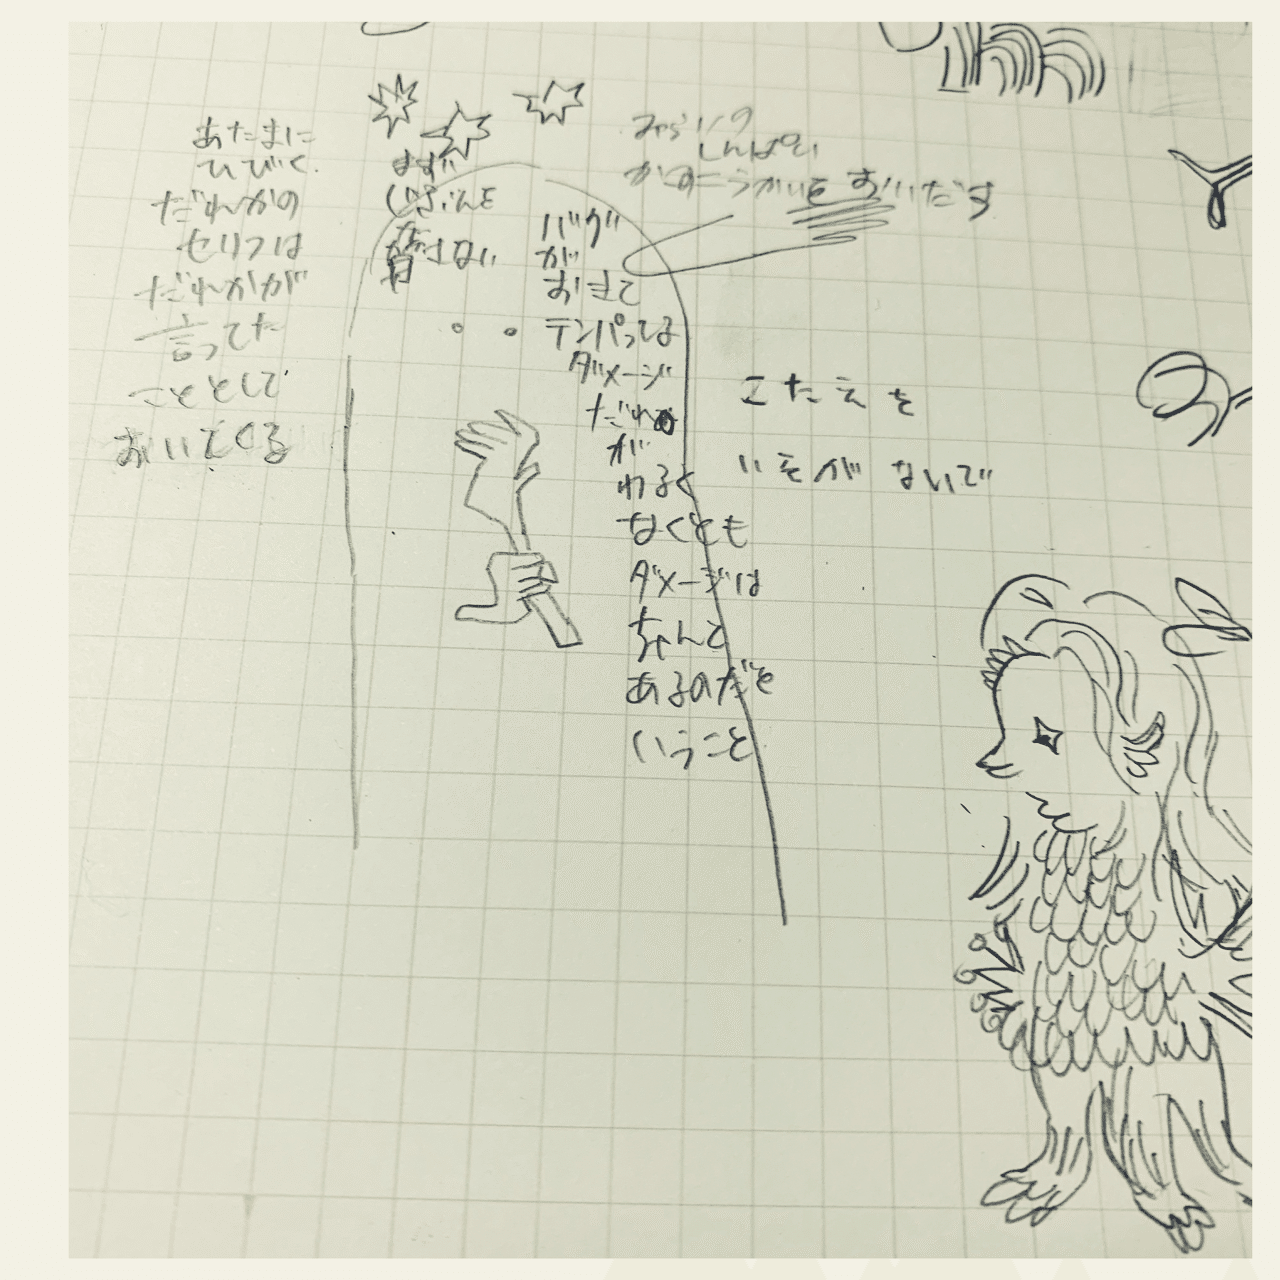 あたまに
ひびく
だれかの
セリフは
だれかが
言ってた
こととして
おいてくる
まず
じぶんを
責めない
バグ
が
おきて
テンパってる
ダメージ
だれ
が
わるく
なくとも
ダメージは
ちゃんと
あるのだと
いうこと
しんぱい
おいだす
こたえを
いそがないで